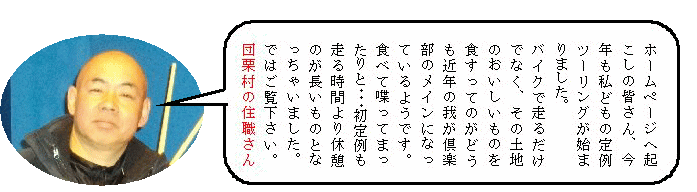 ホームページへ起
こしの皆さん、今
年も私どもの定例
ツーリングが始ま
りました。
バイクで走るだけ
でなく、その土地
のおいしいものを
食すってのがどう
も近年の我が倶楽
部のメインになっ
ているようです。
食べて喋ってまっ
たりと･･･初定例も
走る時間より休憩
のが長いものとな
っちゃいました。
ではご覧下さい。
団栗村の住職さん